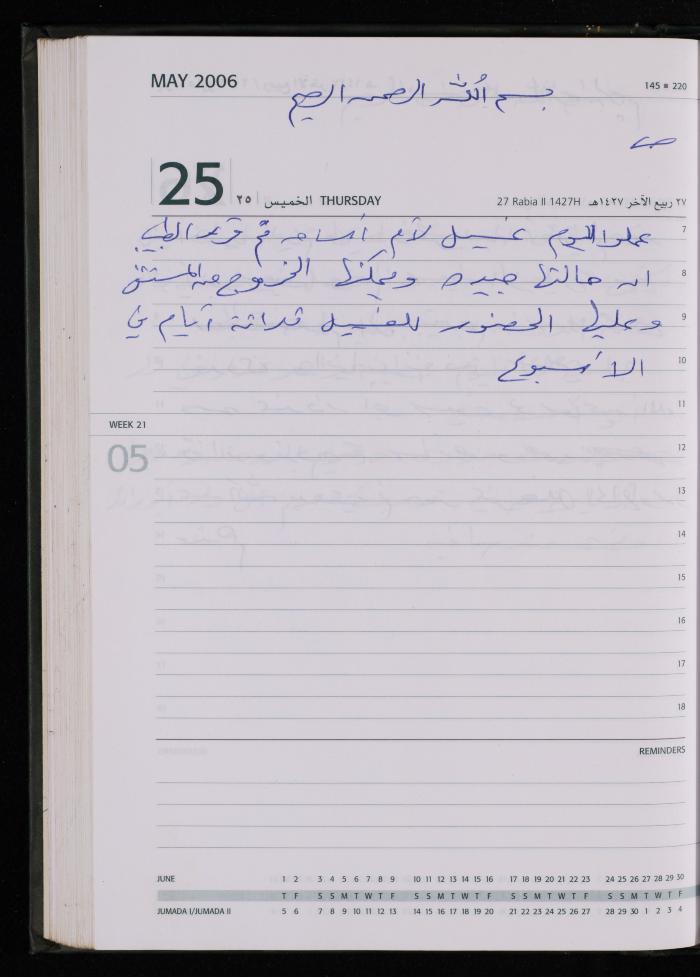 MAY 2006
145 ■ 220
بسم الله الرحمن الرحيم
25 ٢٥ الخميس THURSDAY
27 Rabia II 1427H ٢٧ ربيع الآخر ١٤٢٧هـ
7
عملوا اليوم غسيل لأم أسامه ثم قرر الطبيب
8
ان حالتها جيده ويمكنها الخروج من المستشفى
9
وعليها الحضور للغسيل ثلاثة أيام في
10
الأسبوع
11
WEEK 21
05
12
13
14
15
16
17
18
REMINDERS
JUNE 1 2 3 4 5 6 7 8 9 10 11 12 13 14 15 16 17 18 19 20 21 22 23 24 25 26 27 28 29 30
T F S S M T W T F S S M T W T F S S M T W T F S S M T W T F
JUMADA I/JUMADA II 5 6 7 8 9 10 11 12 13 14 15 16 17 18 19 20 21 22 23 24 25 26 27 28 29 30 1 2 3 4